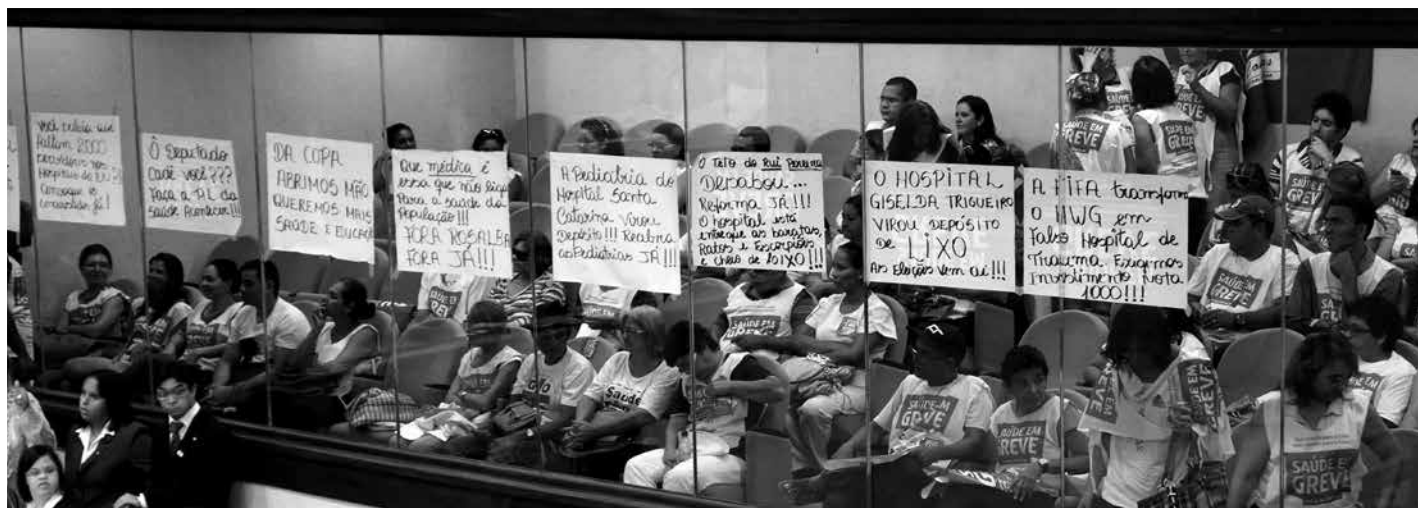 Você sabia que
faltam 2000
servidores nos
Hospitais do
Convoque o
concursado já!
Ô Deputado
Cadê você???
Faça a PL da
Saúde Acontecer!!!
DA COPA
ABRIMOS MÃO
QUEREMOS MAIS
SAÚDE E EDUCAÇÃO
Que médica é
essa que não liga
Para a saúde da
População!!!
FORA ROSALBA
FORA JÁ!!!
A Pediatria do
Hospital Santa
Catarina Virou
Depósito!!! Reabra
as Pediatrias JÁ!!!
O Teto do Rui Pereira
Desabou...
Reforma JÁ!!!
O hospital está
entregue as baratas,
Ratos e Escorpiões
e cheio de lixo!!!
O HOSPITAL
GISELDA TRIGUEIRO
VIROU DEPÓSITO
DE LIXO
As Eleições Vem aí!!!
A FIFA transforma
O HWG em
Falso Hospital de
Trauma. Exigimos
Investimento Nota
1000!!!
SAÚDE EM
GREVE
SAÚDE EM
GREVE
SAÚDE EM
GREVE
SAÚDE EM
GREVE
SAÚDE EM
GREVE
Saúde
SAÚDE EM
GREVE